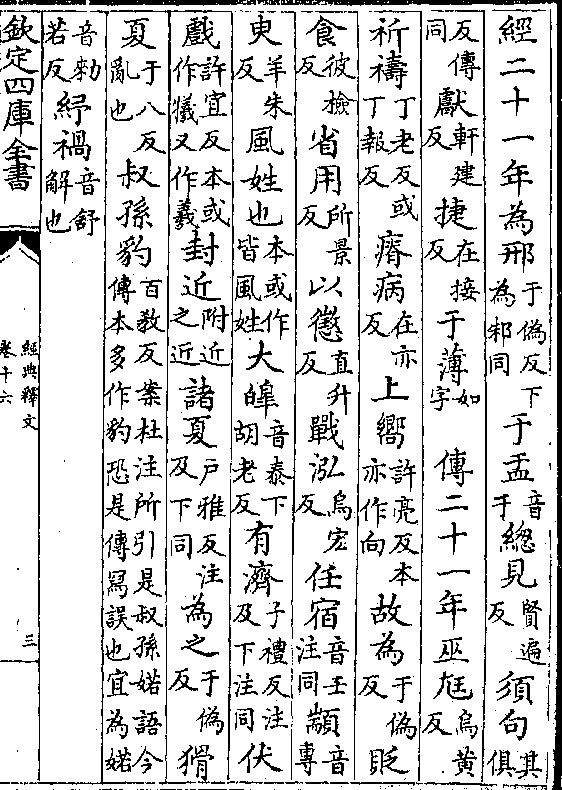 經二十一年為邢于偽反下為邾同于盂音于總見賢遍反須句其俱
反傳同獻軒建反捷在接反于薄如字　傳二十一年巫尫烏黃反
祈禱丁老反或丁報反瘠病在亦反上嚮許亮反本亦作向故為于偽反貶
食彼檢反省用所景反以懲直升反戰泓烏宏反任宿音壬注同顓音專
臾羊朱反風姓也本或作皆風姓大皡音泰下胡老反有濟子禮反注及下注同伏
戲許宜反本或作犧又作羲封近附近之近諸夏戶雅反注及下同為之于偽反猾
夏于八反亂也叔孫豹百教反案杜注所引是叔孫婼語今傳本多作豹恐是傳寫誤也宜為婼
音勑若反紓禍音舒解也
欽定四庫全書
經典釋文
卷十六
三